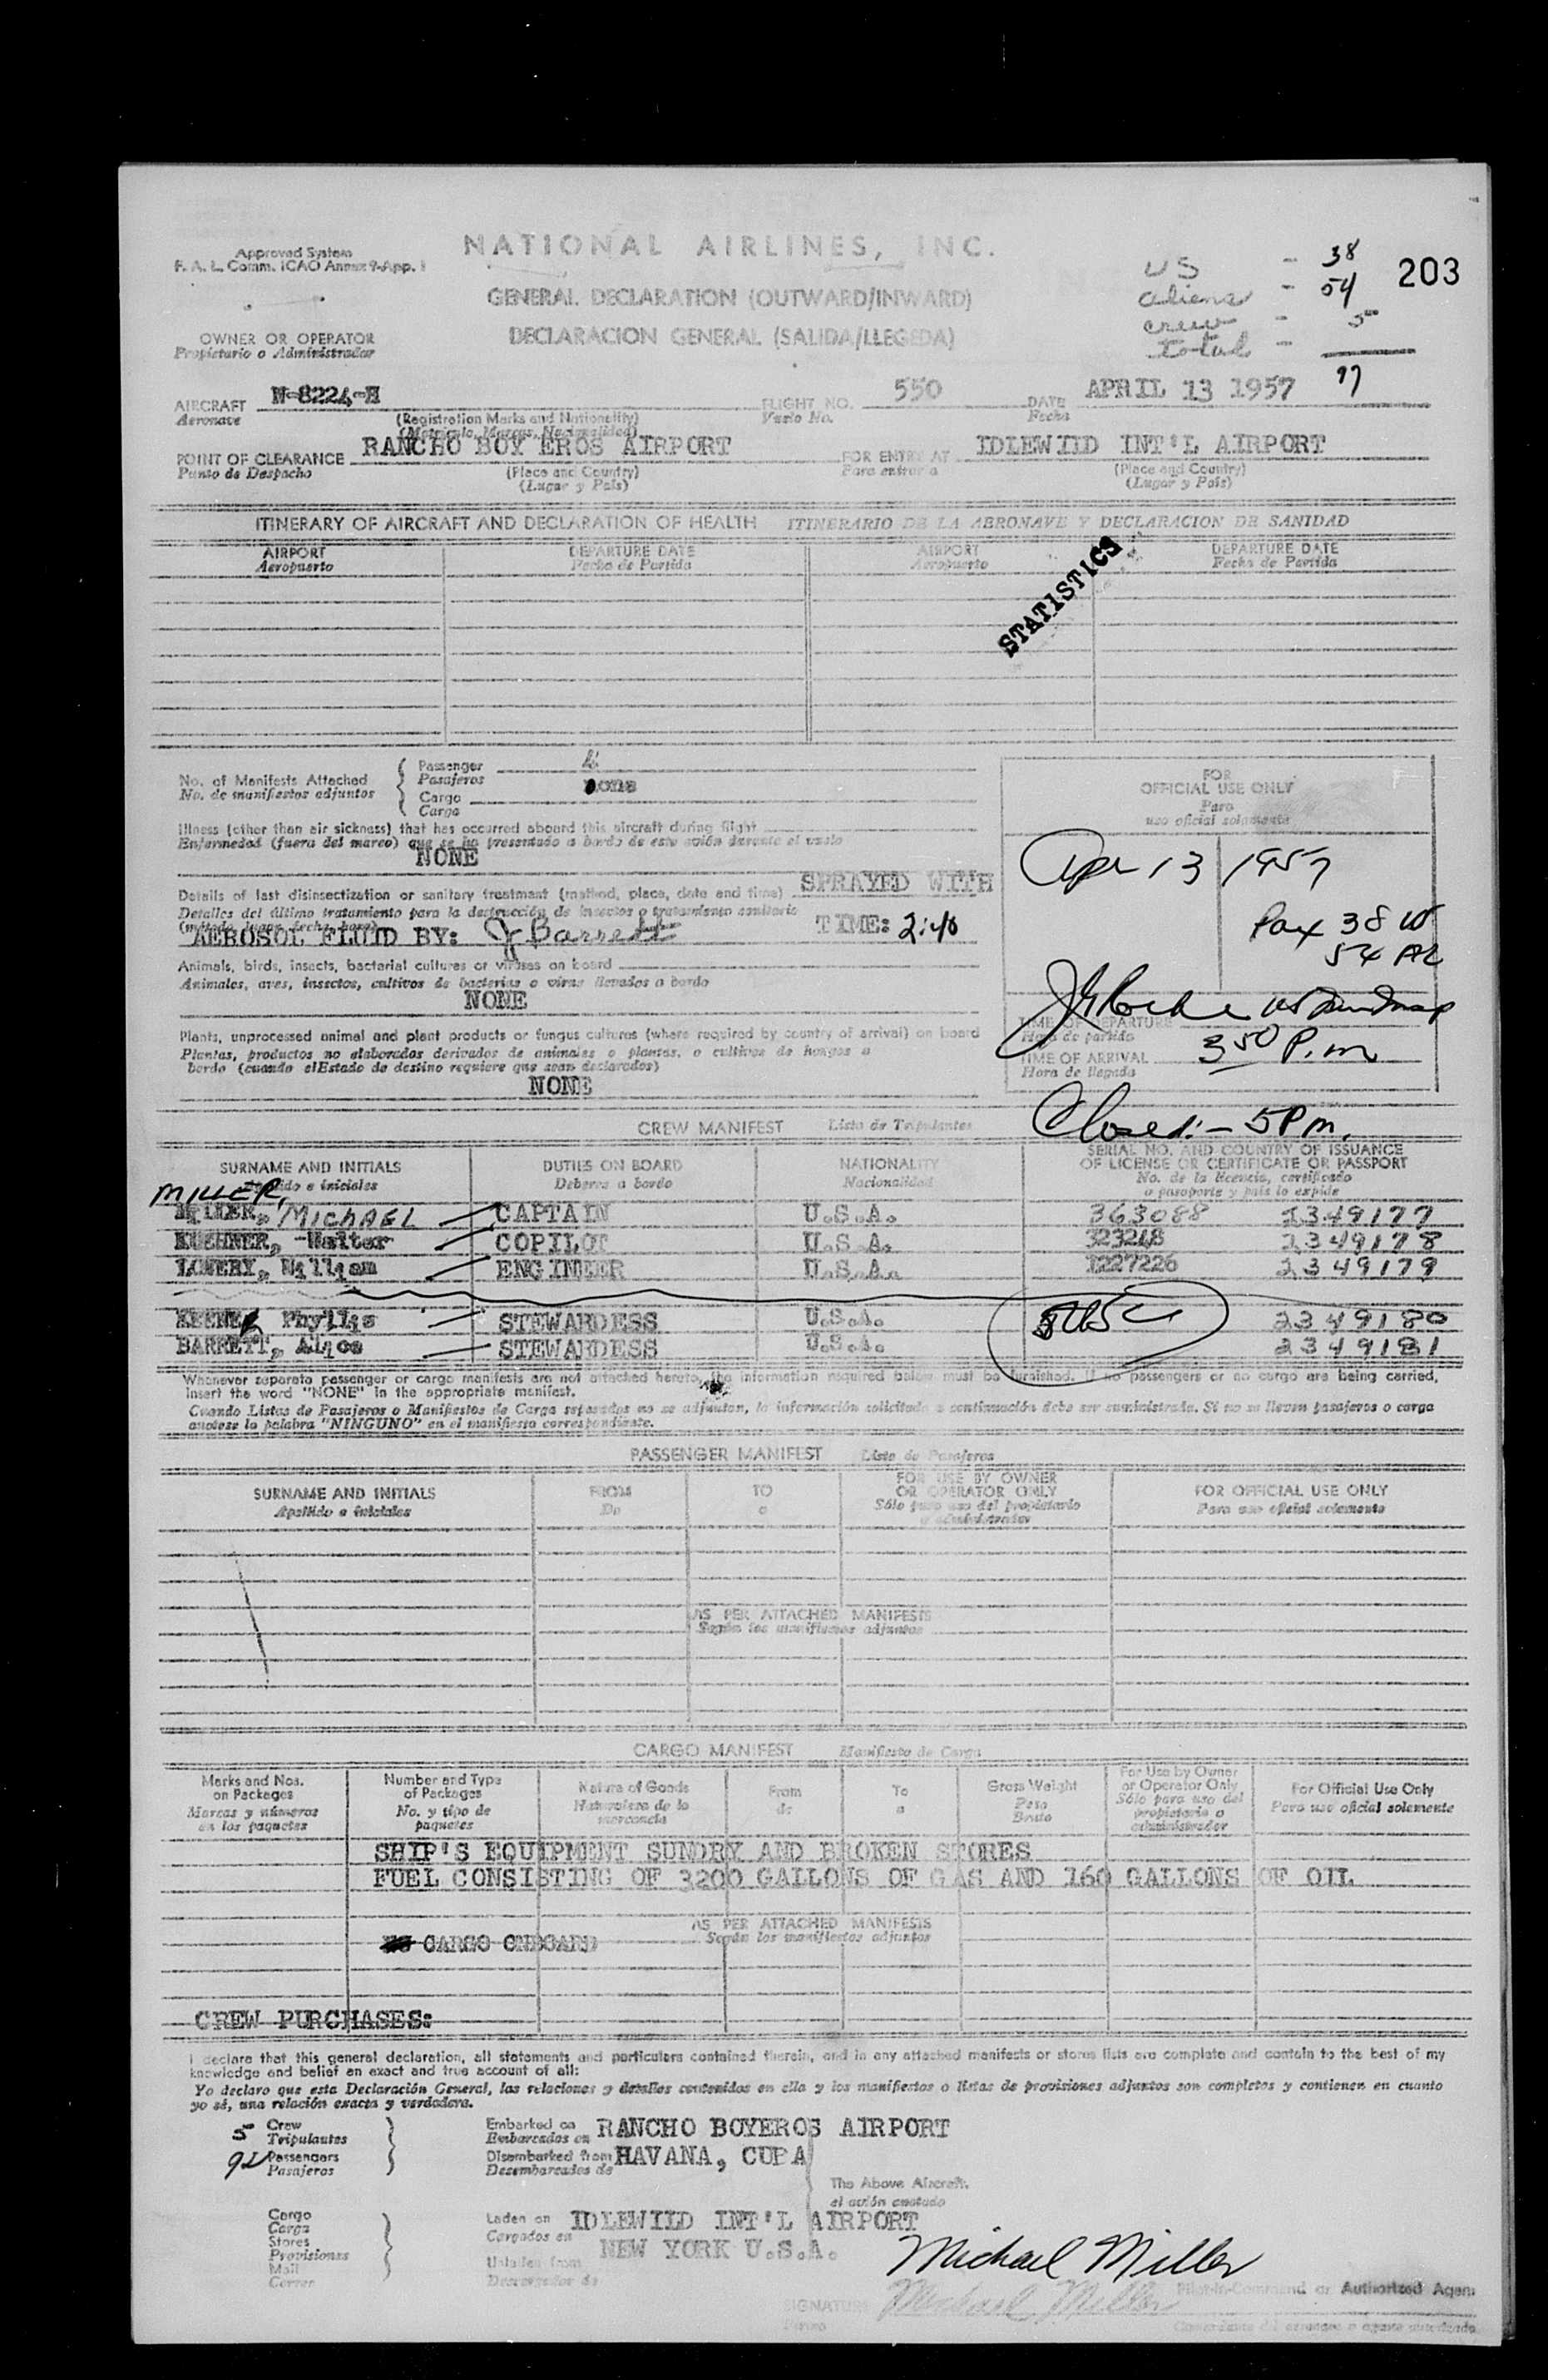 NATIONAL AIRLINES, INC.
Approved System
F. A. L. Comm. ICAO Annex 9-App. 1
US - 38
203
aliens - 54
crew - 5
total -
97
GENERAL DECLARATION (OUTWARD/INWARD)
DECLARACION GENERAL (SALIDA/LLEGEDA)
OWNER OR OPERATOR
Propietario o Administrador
AIRCRAFT N-8224-H FLIGHT NO. 550 DATE APRIL 13 1957
Aeronave (Registration Marks and Nationality) Vuelo No. Fecha
(Matricula, Marcas, Nacionalidad)
POINT OF CLEARANCE RANCHO BOY EROS AIRPORT FOR ENTRY AT IDLEWIID INT'L AIRPORT
Punto de Despacho (Place and Country) Para entrar a (Place and Country)
(Lugar y País) (Lugar y País)
ITINERARY OF AIRCRAFT AND DECLARATION OF HEALTH ITINERARIO DE LA AERONAVE Y DECLARACION DE SANIDAD
AIRPORT DEPARTURE DATE AIRPORT DEPARTURE DATE
Aeropuerto Fecha de Partida Aeropuerto Fecha de Partida
STATISTICS
No. of Manifests Attached
No. de manifiestos adjuntos
Passenger
Pasajeros
Cargo none
Carga
FOR
OFFICIAL USE ONLY
Para
uso oficial solamente
Illness (other than air sickness) that has occurred aboard this aircraft during flight
Enfermedad (fuera del mareo) que se ha presentado a bordo de este avión durante el vuelo
NONE
Apr 13 1957
Details of last disinsectization or sanitary treatment (method, place, date and time) SPRAYED WITH
Detalles del último tratamiento para la destrucción de insectos o tratamiento sanitario
(método, lugar, fecha, hora)
AEROSOL FLUID BY: Barrett TIME: 2:40
Pax 38 US
54 AL
Animals, birds, insects, bacterial cultures or viruses on board
Animales, aves, insectos, cultivos de bacterias o virus llevados a bordo
NONE
Plants, unprocessed animal and plant products or fungus cultures (where required by country of arrival) on board
Plantas, productos no elaborados derivados de animales o plantas, o cultivos de hongos a
bordo (cuando el Estado de destino requiere que sean declarados)
NONE
TIME OF DEPARTURE
Hora de partida
TIME OF ARRIVAL 3 50 P.m
Hora de llegada
Closed:- 5 Pm.
CREW MANIFEST Lista de Tripulantes
SURNAME AND INITIALS DUTIES ON BOARD NATIONALITY SERIAL NO. AND COUNTRY OF ISSUANCE
OF LICENSE OR CERTIFICATE OR PASSPORT
Apellido e iniciales Deberes a bordo Nacionalidad No. de la licencia, certificado
o pasaporte y país lo expide
MILLER,
MILLER, MICHAEL CAPTAIN U.S.A. 363088 2349177
KUSHNER, Walter COPILOT U.S.A. 323248 2349178
LOWERY, William ENGINEER U.S.A. 1227226 2349179
KEENE, Phyllis STEWARDESS U.S.A. 2349180
BARRETT, Alice STEWARDESS U.S.A. 2349181
Whenever separate passenger or cargo manifests are not attached hereto, the information required below must be furnished. If no passengers or no cargo are being carried,
insert the word "NONE" in the appropriate manifest.
Cuando Listas de Pasajeros o Manifiestos de Carga separados no se adjuntan, la información solicitada a continuación debe ser suministrada. Si no se lleven pasajeros o carga
anotese la palabra "NINGUNO" en el manifiesto correspondiente.
PASSENGER MANIFEST Lista de Pasajeros
SURNAME AND INITIALS FROM TO FOR USE BY OWNER OR OPERATOR ONLY FOR OFFICIAL USE ONLY
Apellido e iniciales De a Sólo para uso del propietario o administrador Para uso oficial solamente
AS PER ATTACHED MANIFESTS
Según los manifiestos adjuntos
CARGO MANIFEST Manifiesto de Carga
Marks and Nos. on Packages Number and Type of Packages Nature of Goods From To Gross Weight For Use by Owner or Operator Only For Official Use Only
Marcas y números en los paquetes No. y tipo de paquetes Naturaleza de la mercancía de a Peso Bruto Sólo para uso del propietario o administrador Para uso oficial solemente
SHIP'S EQUIPMENT SUNDRY AND BROKEN STORES
FUEL CONSISTING OF 3200 GALLONS OF GAS AND 160 GALLONS OF OIL
AS PER ATTACHED MANIFESTS
Según los manifiestos adjuntos
CARGO ONBOARD
CREW PURCHASES:
I declare that this general declaration, all statements and particulars contained therein, and in any attached manifests or stores lists are complete and contain to the best of my
knowledge and belief an exact and true account of all:
Yo declaro que esta Declaración General, las relaciones y detalles contenidos en ella y los manifiestos o listas de provisiones adjuntos son completos y contienen en cuanto
yo sé, una relación exacta y verdadera.
5 Crew Embarked on RANCHO BOYEROS AIRPORT
Tripulantes Embarcados en
92 Passengers Disembarked from HAVANA, CUBA
Pasajeros Desembarcados de
The Above Aircraft.
el avión anotado
Cargo Laden on IDLEWILD INT'L AIRPORT
Carga Cargados en
Stores NEW YORK U.S.A.
Provisiones
Mail Unladen from
Correo Descargados de
Michael Miller
Pilot-in-Command or Authorized Agent
SIGNATURE Michael Miller